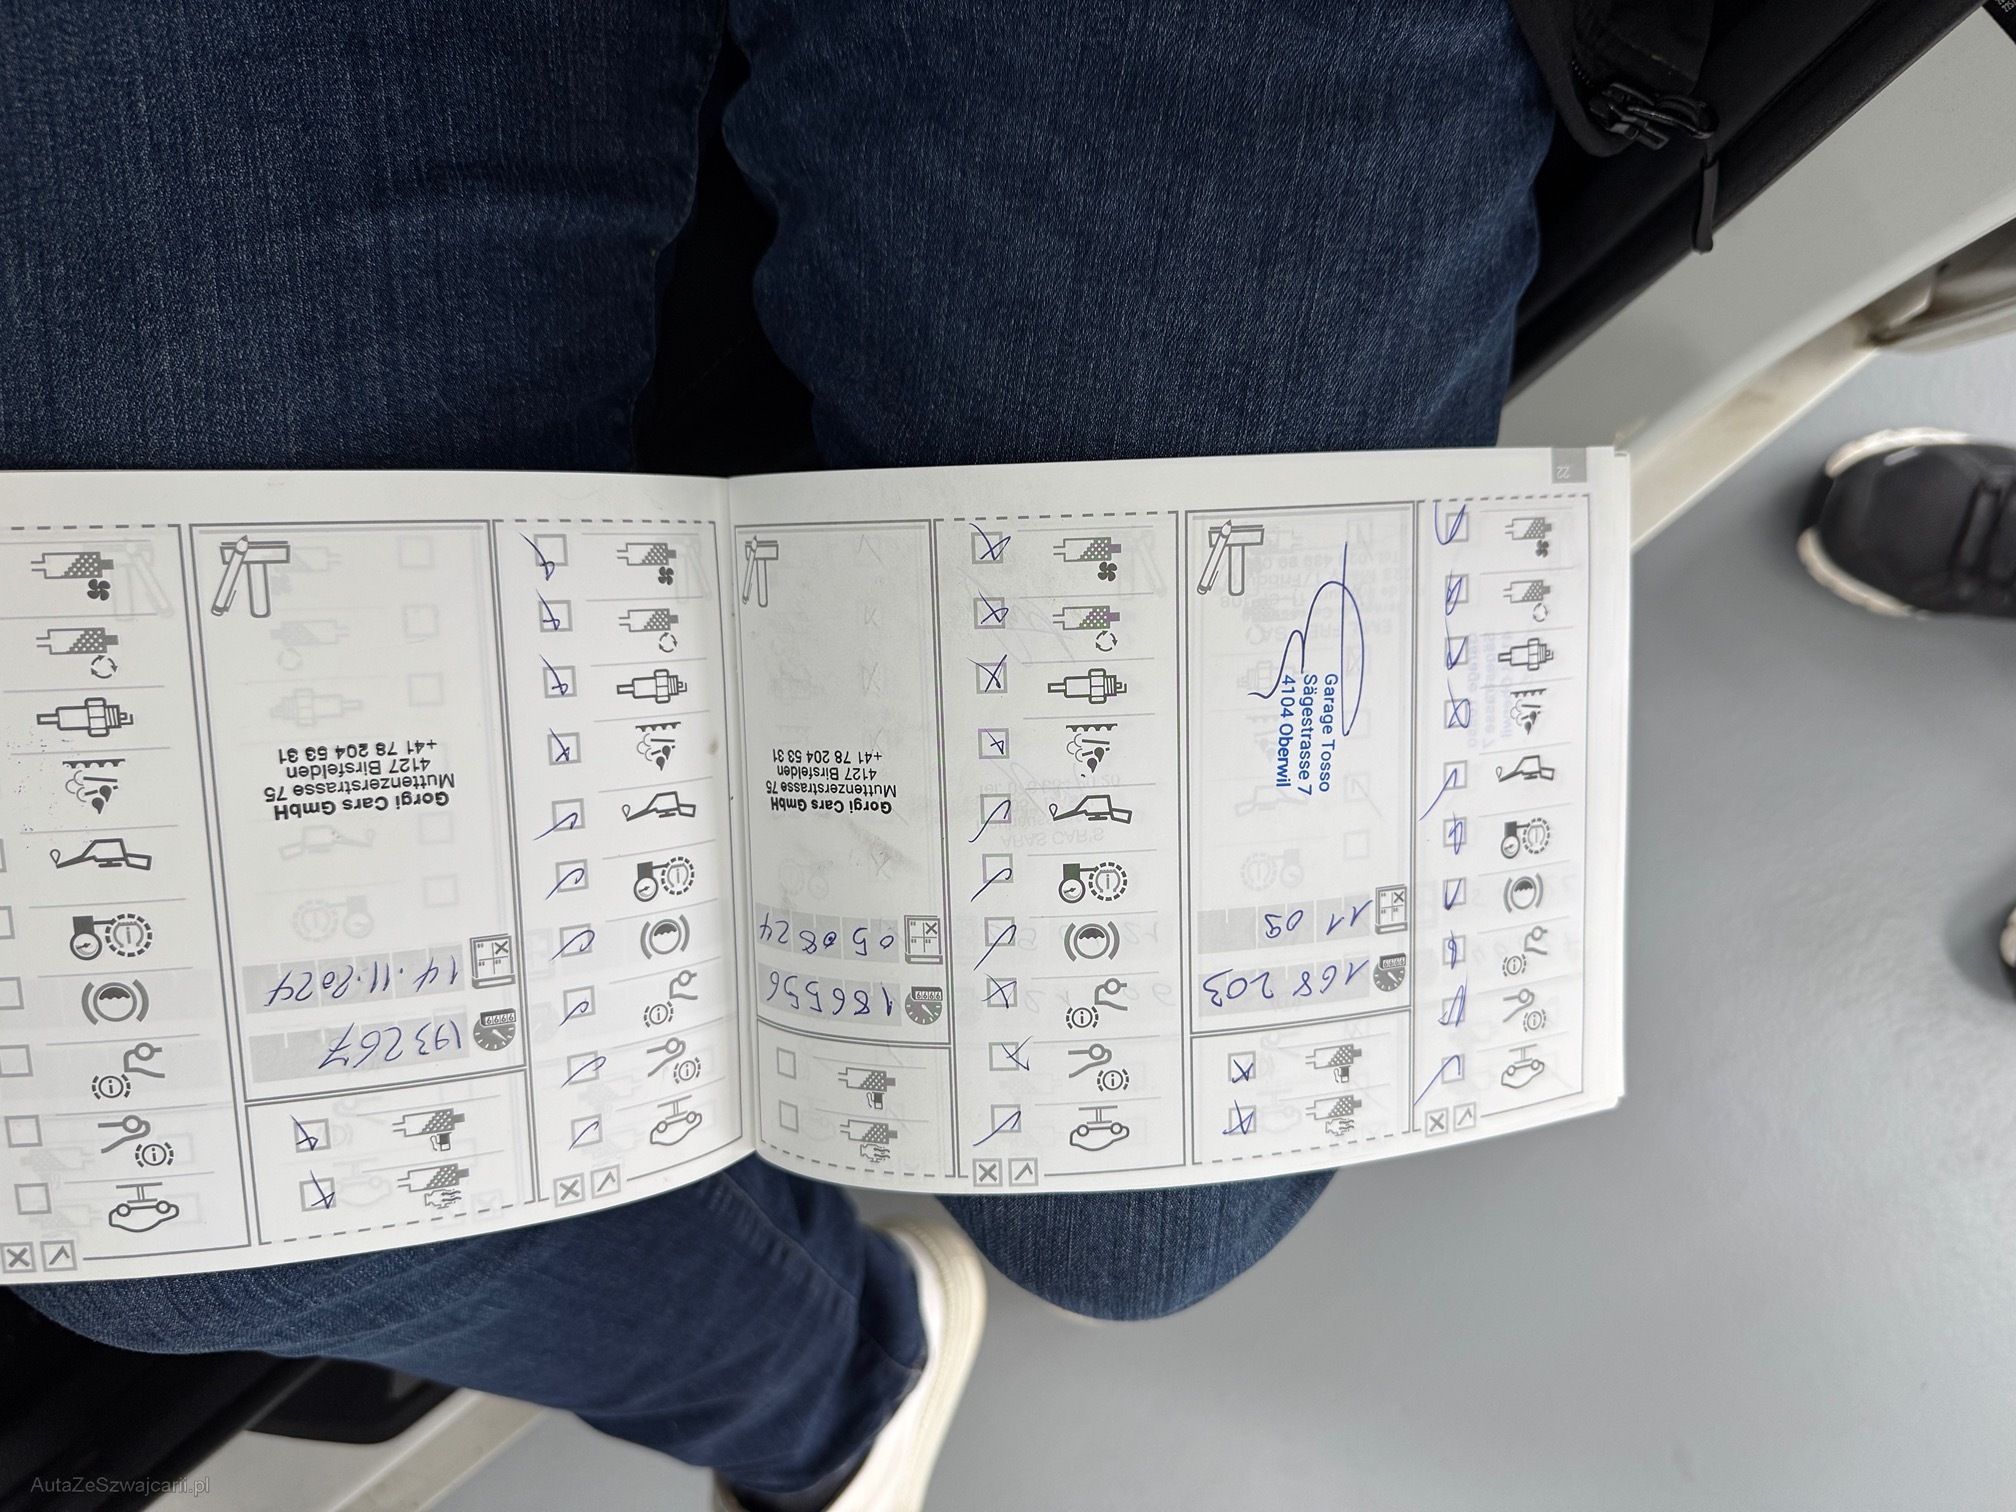 22
Garage Tosso
Sägestrasse 7
4104 Oberwil
11 09
168 203
Gorgi Cars GmbH
Muttenzerstrasse 75
4127 Birsfelden
+41 78 204 53 31
05 08 24
186556
Gorgi Cars GmbH
Muttenzerstrasse 75
4127 Birsfelden
+41 78 204 53 31
14.11.2024
193267
AutaZeSzwajcarii.pl